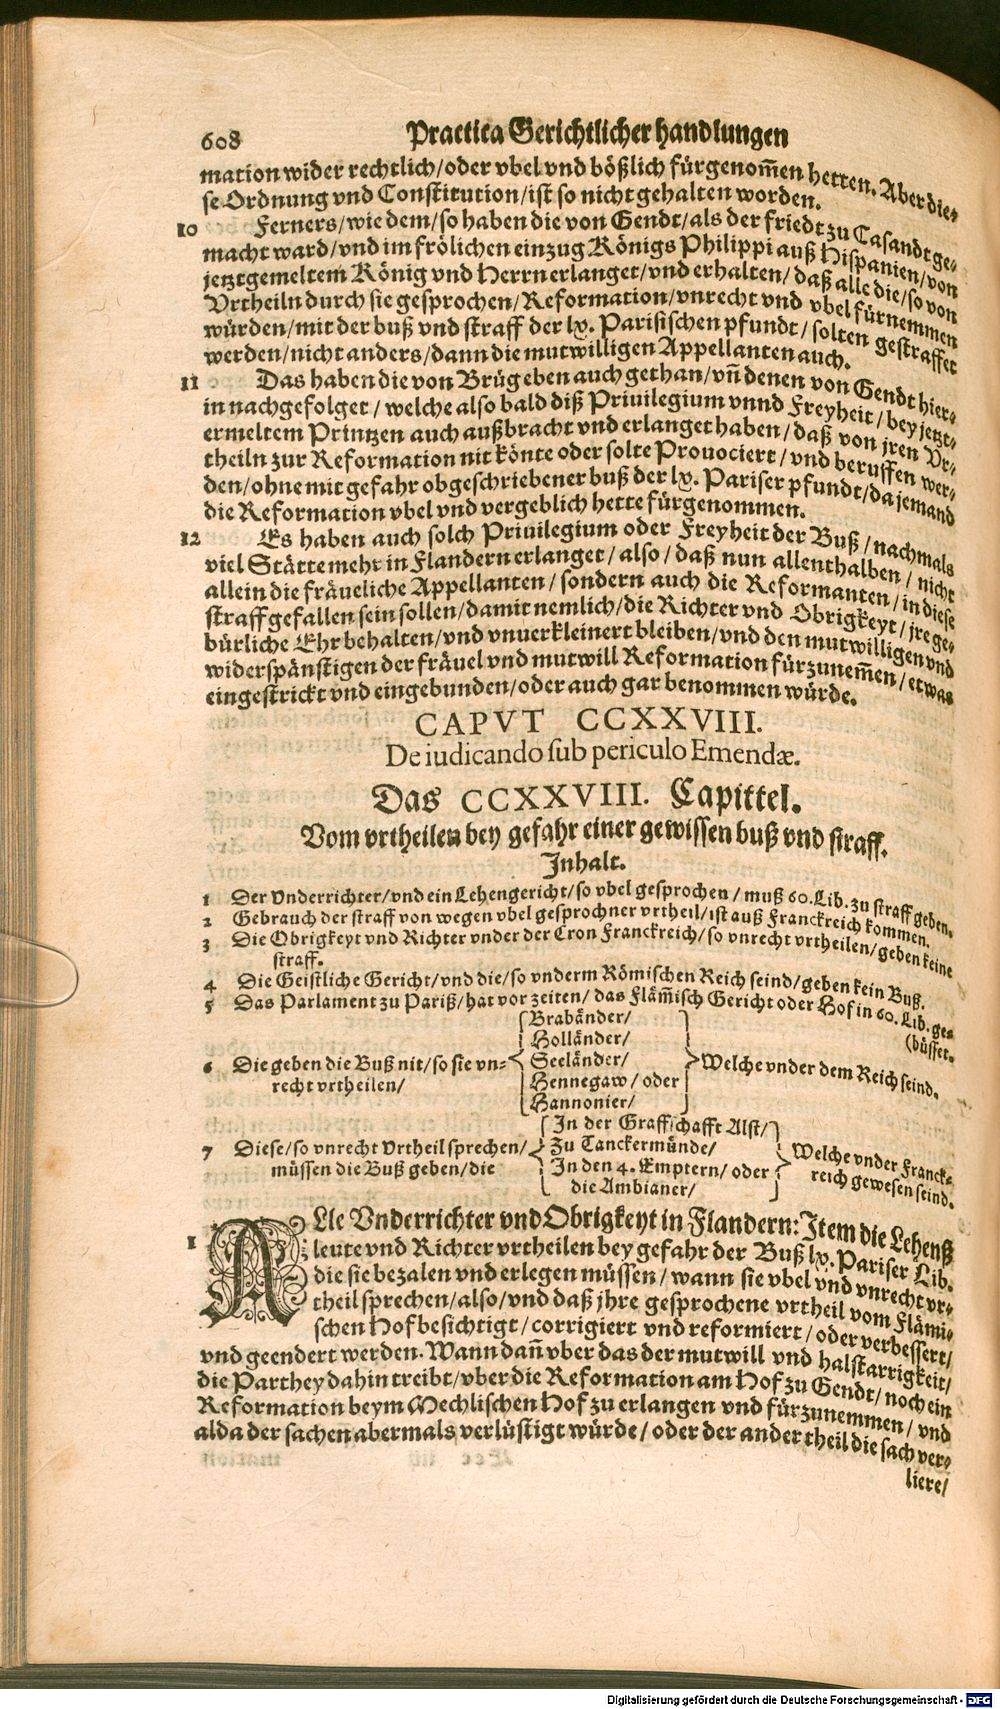 608 Practica Gerichtlicher handlungen
mation wider rechtlich/oder vbel vnd bößlich fürgenom̃en hetten. Aber die-
se Ordnung vnd Constitution/ist so nicht gehalten worden.
10 Ferners/wie dem/so haben die von Gendt/als der friedt zu Casandt ge-
macht ward/vnd im frölichen einzug Königs Philippi auß Hispanien/von
jetztgemeltem König vnd Herrn erlanget/vnd erhalten/daß alle die/so von
Vrtheiln durch sie gesprochen/Reformation/vnrecht vnd vbel fürnemmen
würden/mit der buß vnd straff der lx. Parisischen pfundt/solten gestraffet
werden/nicht anders/dann die mutwilligen Appellanten auch.
11 Das haben die von Brüg eben auch gethan/vñ denen von Gendt hier-
in nachgefolget/welche also bald diß Priuilegium vnnd Freyheit/bey jetzt-
ermeltem Printzen auch außbracht vnd erlanget haben/daß von jren Vr-
theiln zur Reformation nit könte oder solte Prouociert/vnd beruffen wer-
den/ohne mit gefahr obgeschriebener buß der lx. Pariser pfundt/da jemand
die Reformation vbel vnd vergeblich hette fürgenommen.
12 Es haben auch solch Priuilegium oder Freyheit der Buß/nachmals
viel Stätte mehr in Flandern erlanget/also/daß nun allenthalben/nicht
allein die fräueliche Appellanten/sondern auch die Reformanten/in diese
straff gefallen sein sollen/damit nemlich/die Richter vnd Obrigkeyt/jre ge-
bürliche Ehr behalten/vnd vnuerkleinert bleiben/vnd den mutwilligen vnd
widerspänstigen der fräuel vnd mutwill Reformation fürzunem̃en/etwas
eingestrickt vnd eingebunden/oder auch gar benommen würde.
CAPVT CCXXVIII.
De iudicando sub periculo Emendæ.
Das CCXXVIII. Capittel.
Vom vrtheilen bey gefahr einer gewissen buß vnd straff.
Inhalt.
1 Der Vnderrichter/vnd ein Lehengericht/so vbel gesprochen/muß 60. Lib. zu straff geben.
2 Gebrauch der straff von wegen vbel gesprochner vrtheil/ist auß Franckreich kommen.
3 Die Obrigkeyt vnd Richter vnder der Cron Franckreich/so vnrecht vrtheilen/geben keine
straff.
4 Die Geistliche Gericht/vnd die/so vnderm Römischen Reich seind/geben kein Buß.
5 Das Parlament zu Pariß/hat vor zeiten/das Fläm̃isch Gericht oder Hof in 60. Lib. ge-
(büsset.
Brabänder/
Holländer/
6 Die geben die Buß nit/so sie vn- Seeländer/ Welche vnder dem Reich seind.
recht vrtheilen/ Hennegaw/oder
Hannonier/
In der Graffschafft Alst/
7 Diese/so vnrecht Vrtheil sprechen/ Zu Tanckermünde/ Welche vnder Franck-
müssen die Buß geben/die In den 4. Emptern/oder reich gewesen seind.
die Ambianer/
1 ALle Vnderrichter vnd Obrigkeyt in Flandern: Item die Lehenß
leute vnd Richter vrtheilen bey gefahr der Buß lx. Pariser Lib.
die sie bezalen vnd erlegen müssen/wann sie vbel vnd vnrecht vr-
theil sprechen/also/vnd daß jhre gesprochene vrtheil vom Flämi-
schen Hof besichtigt/corrigiert vnd reformiert/oder verbessert/
vnd geendert werden. Wann dañ vber das der mutwill vnd halstarrigkeit/
die Parthey dahin treibt/vber die Reformation am Hof zu Gendt/noch ein
Reformation beym Mechlischen Hof zu erlangen vnd fürzunemmen/vnd
alda der sachen abermals verlüstigt würde/oder der ander theil die sach ver-
liere/
Digitalisierung gefördert durch die Deutsche Forschungsgemeinschaft - DFG